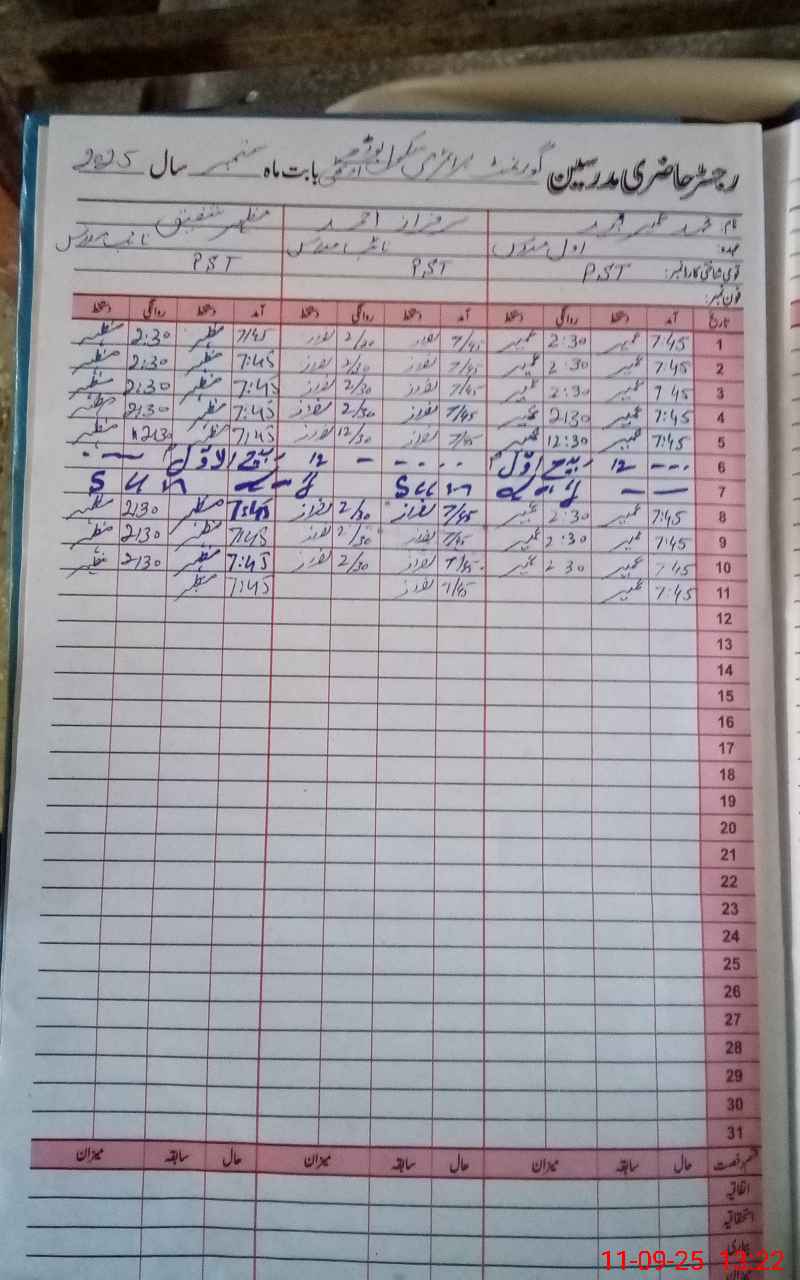 رجسٹر حاضری مدرسین گورنمنٹ پرائمری سکول بابت ماہ ستمبر سال 2025
نام: محمد عمیر احمد سرفراز احمد مظہر شفیق
عہدہ: اول مدرس نائب مدرس نائب مدرس
قومی شناختی کارڈ نمبر: P.S.T P.S.T P.S.T
فون نمبر:
تاریخ آمد دستخط روانگی دستخط آمد دستخط روانگی دستخط آمد دستخط روانگی دستخط
1 7:45 عمیر 2:30 عمیر 7/45 سرفراز 2/30 سرفراز 7/45 مظہر 2:30 مظہر
2 7:45 عمیر 2:30 عمیر 7/45 سرفراز 2/30 سرفراز 7:45 مظہر 2:30 مظہر
3 7:45 عمیر 2:30 عمیر 7/45 سرفراز 2/30 سرفراز 7:45 مظہر 2:30 مظہر
4 7:45 عمیر 2:30 عمیر 7/45 سرفراز 2/30 سرفراز 7:45 مظہر 2:30 مظہر
5 7:45 عمیر 12:30 عمیر 7/45 سرفراز 12/30 سرفراز 7:45 مظہر 12:30 مظہر
6 12 ربیع الاول 12 ربیع الاول
7 Sun Sun
8 7:45 عمیر 2:30 عمیر 7/45 سرفراز 2/30 سرفراز 7:45 مظہر 2:30 مظہر
9 7:45 عمیر 2:30 عمیر 7/45 سرفراز 2/30 سرفراز 7:45 مظہر 2:30 مظہر
10 7:45 عمیر 2:30 عمیر 7/45 سرفراز 2/30 سرفراز 7:45 مظہر 2:30 مظہر
11 7:45 عمیر 7/45 سرفراز 7:45 مظہر
12
13
14
15
16
17
18
19
20
21
22
23
24
25
26
27
28
29
30
31
قسم رخصت حال سابقہ میزان حال سابقہ میزان حال سابقہ میزان
اتفاقیہ
استحقاقیہ
بیماری
میزان
11-09-25 13:22